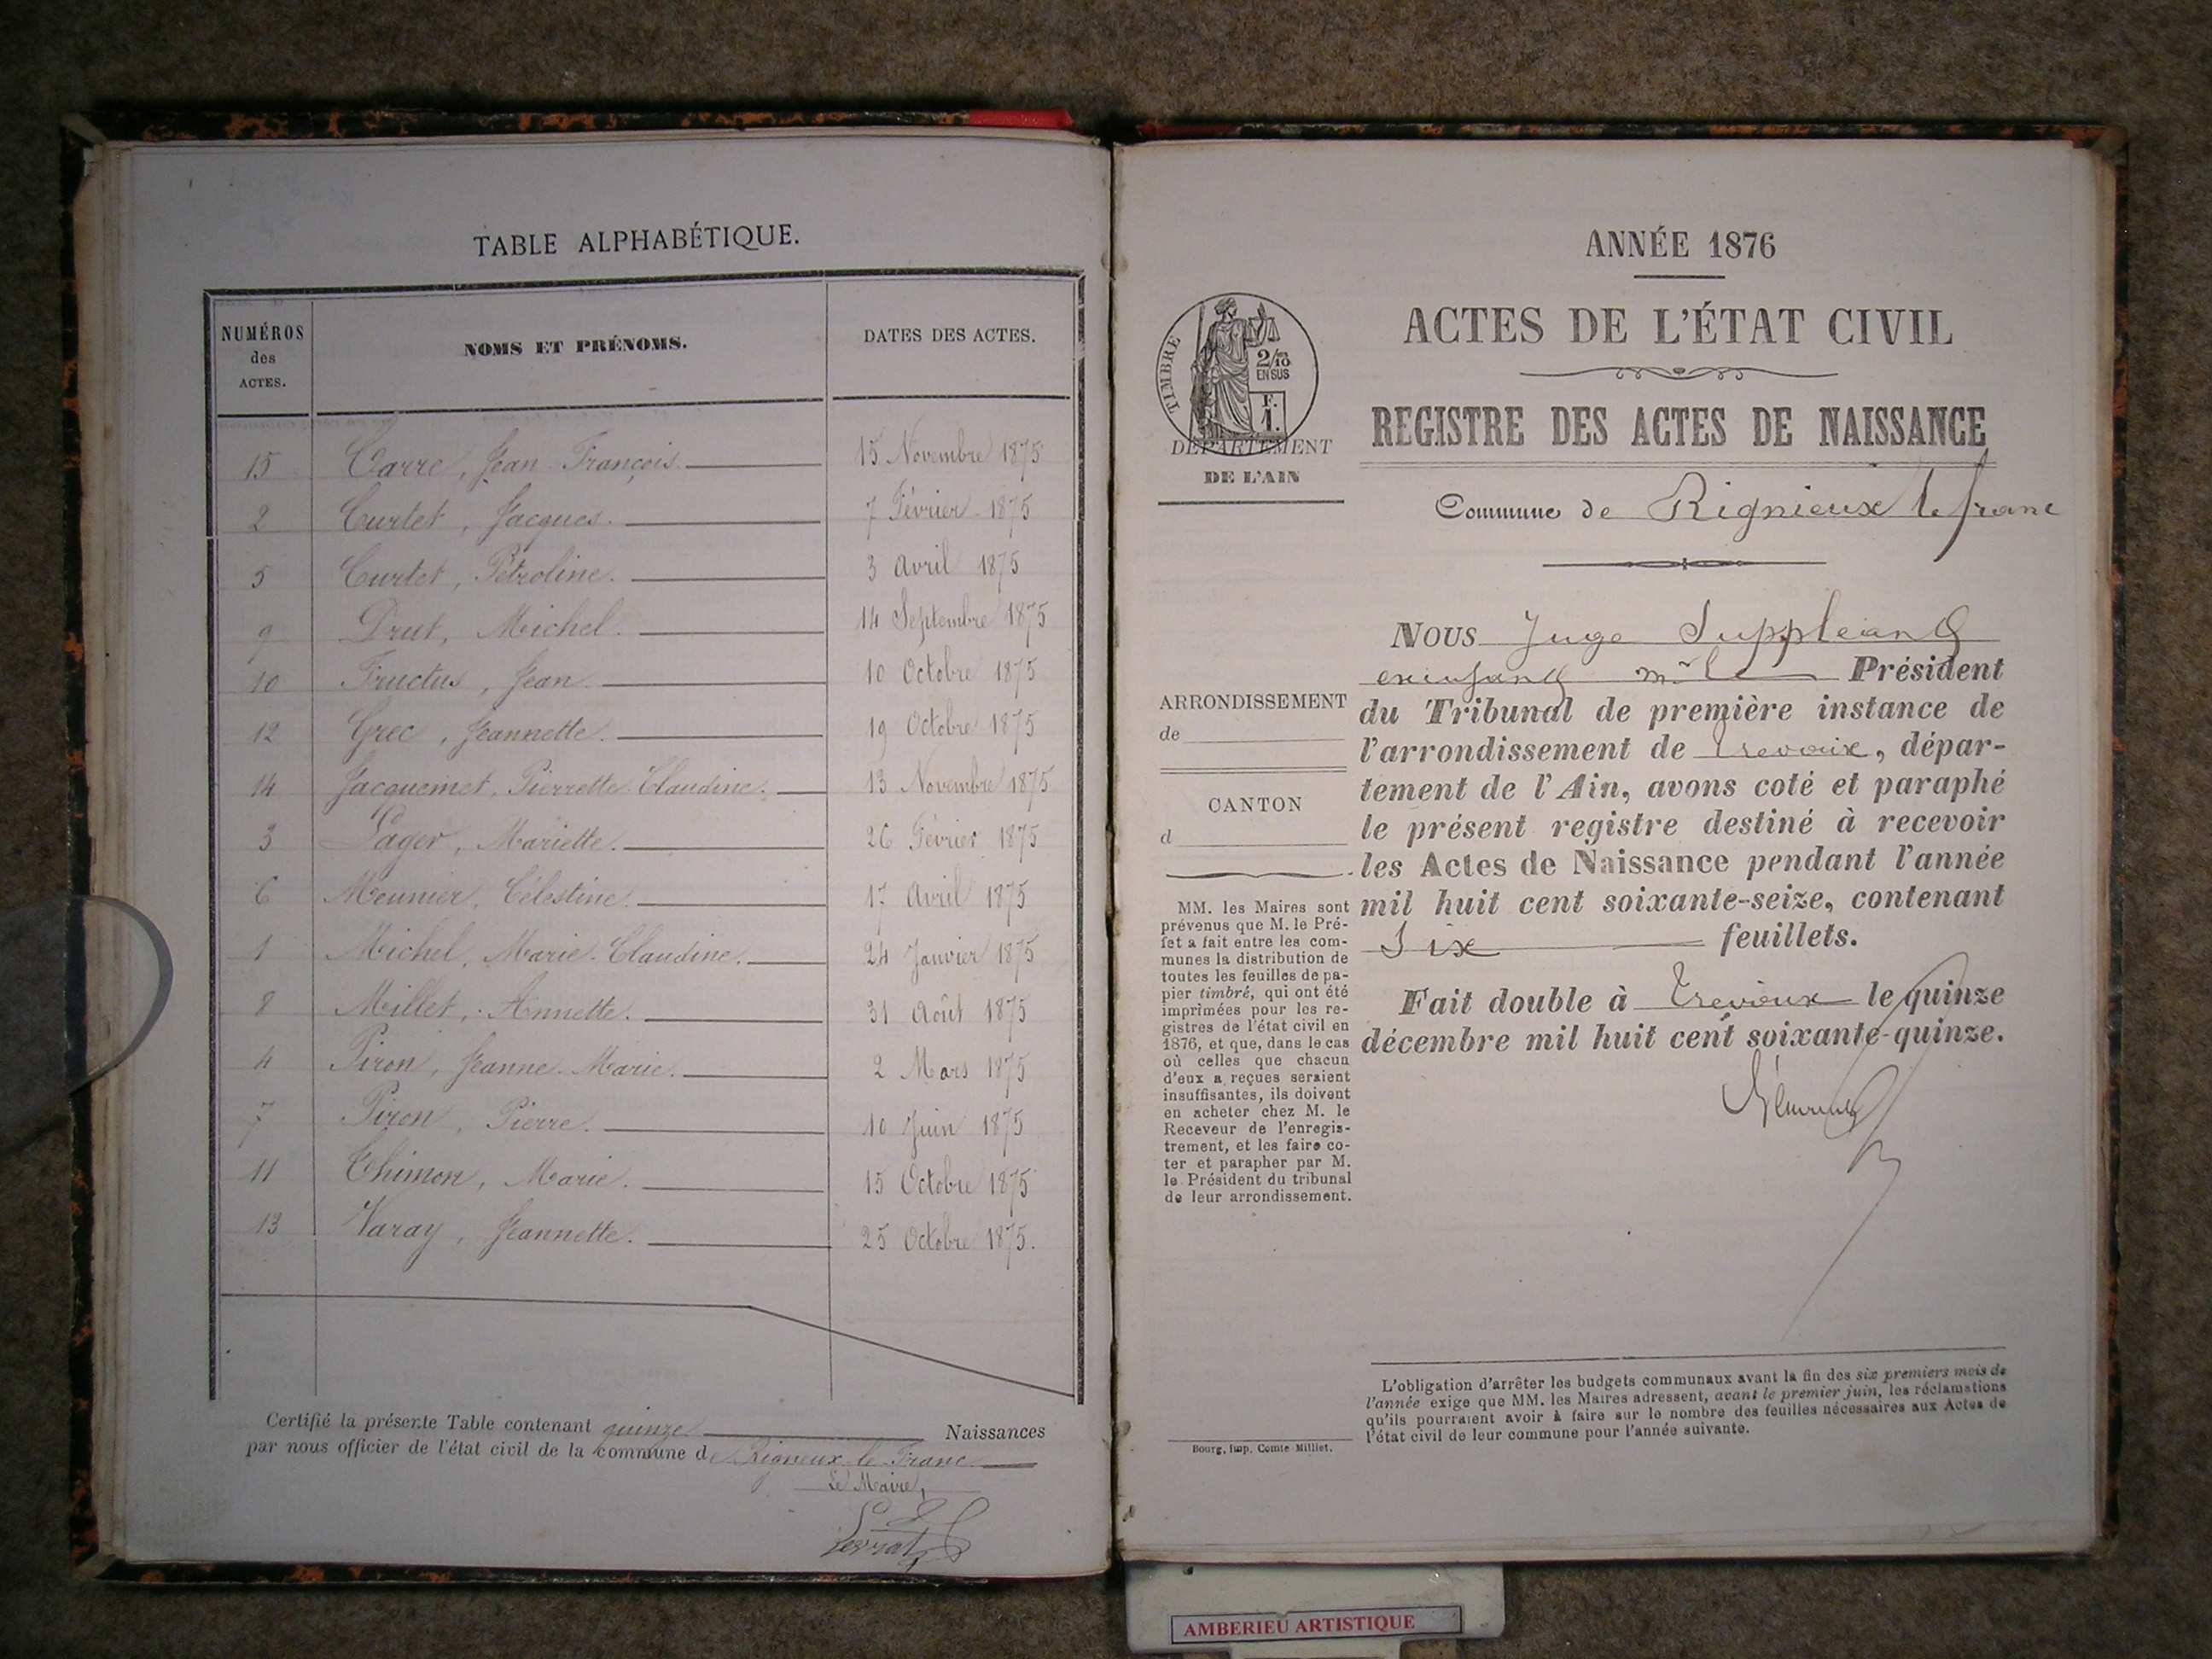 TABLE ALPHABÉTIQUE.
NUMÉROS des ACTES. NOMS ET PRÉNOMS. DATES DES ACTES.
15 Carre, Jean-François 15 Novembre 1875
2 Curtet, Jacques. 7 Février 1875
5 Curtet, Pétroline. 3 Avril 1875
9 Drut, Michel. 14 Septembre 1875
10 Fructus, Jean 10 Octobre 1875
12 Grec, Jeannette. 19 Octobre 1875
14 Jacquemet, Pierrette Claudine. 13 Novembre 1875
3 Lager, Mariette. 26 Février 1875
6 Meunier, Célestine. 17 Avril 1875
1 Michel, Marie-Claudine. 24 Janvier 1875
8 Millet, Annette. 31 Août 1875
4 Piron, Jeanne-Marie. 2 Mars 1875
7 Piron, Pierre. 10 Juin 1875
11 Thimon, Marie. 15 Octobre 1875
13 Varay, Jeannette. 25 Octobre 1875.
Certifié la présente Table contenant quinze Naissances
par nous officier de l'état civil de la commune de Rigneux-le-Franc
Le Maire,
ANNÉE 1876
ACTES DE L'ÉTAT CIVIL
REGISTRE DES ACTES DE NAISSANCE
TIMBRE
2/10
EN SUS
F.
1.
DÉPARTEMENT
DE L'AIN
Commune de Rignieux le franc
Nous Juge Suppleant
Président
du Tribunal de première instance de
l'arrondissement de Trevoux, dépar-
tement de l'Ain, avons coté et paraphé
le présent registre destiné à recevoir
les Actes de Naissance pendant l'année
mil huit cent soixante-seize, contenant
Six feuillets.
Fait double à Trevoux le quinze
décembre mil huit cent soixante-quinze.
ARRONDISSEMENT
de
CANTON
d
MM. les Maires sont
prévenus que M. le Pré-
fet a fait entre les com-
munes la distribution de
toutes les feuilles de pa-
pier timbré, qui ont été
imprimées pour les re-
gistres de l'état civil en
1876, et que, dans le cas
où celles que chacun
d'eux a reçues seraient
insuffisantes, ils doivent
en acheter chez M. le
Receveur de l'enregis-
trement, et les faire co-
ter et parapher par M.
le Président du tribunal
de leur arrondissement.
L'obligation d'arrêter les budgets communaux avant la fin des six premiers mois de
l'année exige que MM. les Maires adressent, avant le premier juin, les réclamations
qu'ils pourraient avoir à faire sur le nombre des feuilles nécessaires aux Actes de
l'état civil de leur commune pour l'année suivante.
Bourg, Imp. Comte-Milliet.
AMBERIEU ARTISTIQUE